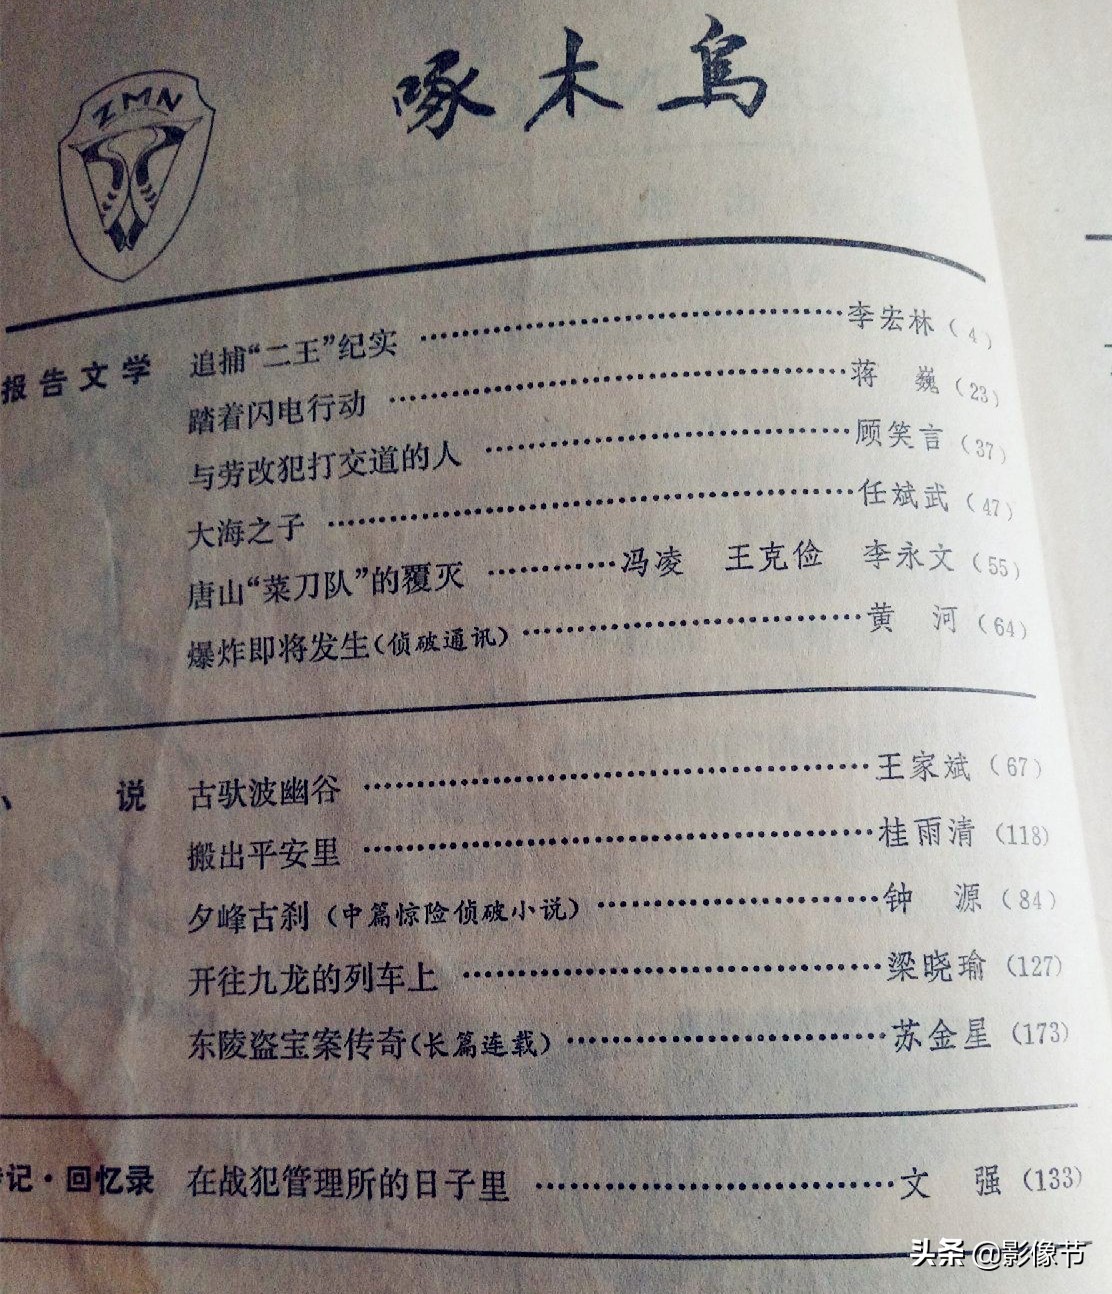 ZMN
啄木鸟
报告文学 追捕“二王”纪实 ……………………李宏林(4)
踏着闪电行动 ……………………蒋 巍(23)
与劳改犯打交道的人 ……………………顾笑言(37)
大海之子 ……………………任斌武(47)
唐山“菜刀队”的覆灭 …………冯凌 王克俭 李永文(55)
爆炸即将发生(侦破通讯) ……………………黄 河(64)
说 古驮波幽谷 ……………………王家斌(67)
搬出平安里 ……………………桂雨清(118)
夕峰古刹(中篇惊险侦破小说) ……………………钟 源(84)
开往九龙的列车上 ……………………梁晓瑜(127)
东陵盗宝案传奇(长篇连载) ……………………苏金星(173)
记·回忆录 在战犯管理所的日子里 ……………………文 强(133)
头条 @影像节